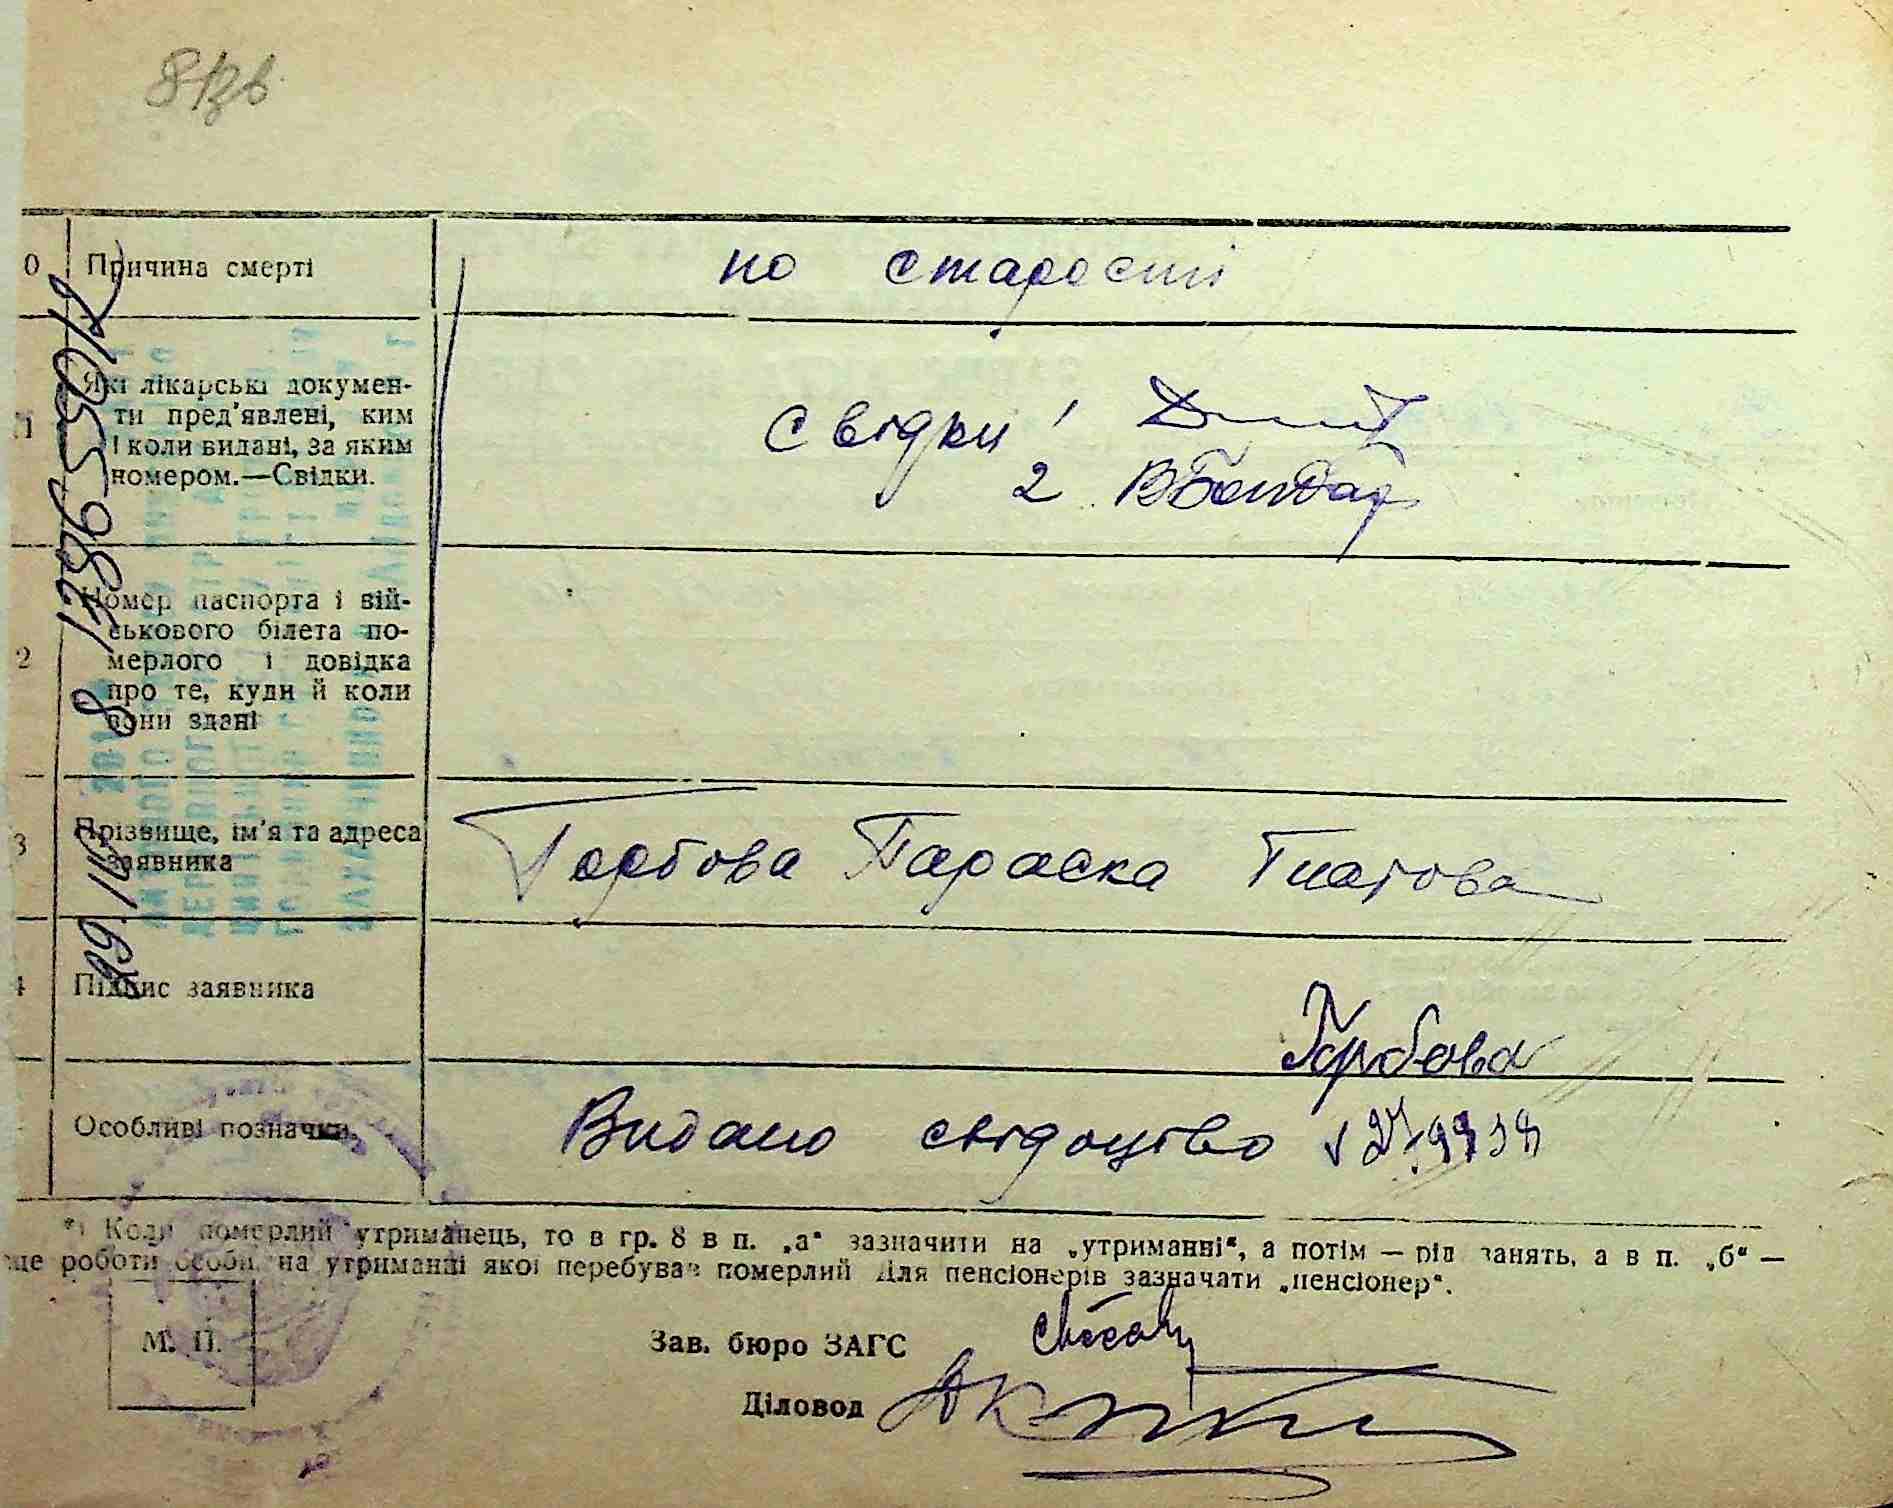 0 Причина смерті по старості
1 Які лікарські докумен-
ти пред'явлені, ким
і коли видані, за яким
номером.—Свідки.
свідки 1
2 ВБондар
2 Номер паспорта і вій-
ськового білета по-
мерлого і довідка
про те, куди й коли
вони здані
3 Прізвище, ім'я та адреса
заявника
Горбова Параска Гнатова
4 Підпис заявника
Горбова
Особливі позначки Видано свідоцтво
*) Коли померлий утриманець, то в гр. 8 в п. „а“ зазначити на „утриманні“, а потім — рід занять, а в п. „б“ —
це роботи особи, на утриманні якої перебував померлий Для пенсіонерів зазначати „пенсіонер“.
М. П.
Зав. бюро ЗАГС
Діловод